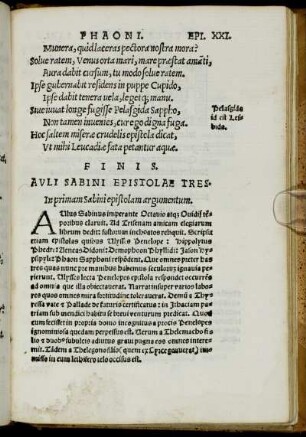 PHAONI. EPI. XXI.
Munera, quid laceras pectora nostra mora?
Solue ratem, Venus orta mari, mare præstat amāti,
Aura dabit cursum, tu modo solue ratem.
Ipse gubernabit residens in puppe Cupido,
Ipse dabit tenera uela, legetq; manu.
Siue iuuat longe fugisse Pelasgida Sappho,
Non tamen inuenies, cur ego digna fuga.
Hoc saltem miseræ crudelis epistola dicat,
Vt mihi Leucadiæ fata petantur aquæ.
Pelasgida
id est Les
bida.
FINIS.
AVLI SABINI EPISTOLAE TRES.
In primam Sabini epistolam argumentum.
AVlus Sabinus imperante Octauio atq; Ouidii tē
poribus claruit.
librum dedit
etiam epistolas quibus Vlysses Penelope: Hippolytus
Phedre: Aeneas Didoni: Demophoon Phyllidi: Iason Hy
psiphyle: Phaon Sapphoni respōdent. Que omnes preter has
tres quas nunc pre manibus habemus
uerunt. Vlysses lecta Penelopes epistola respondet
omnia que illa obiectauerat. Narrat insuper varios labo
res quos omnes mira fortitudine tolerauerat. Demū e Thy
resie vate e Pallade
sub mendici habitu se breui venturum predicat.
eum fecisset in propria domo incognitus a procis Penelopes
ignominiosa quedam perpessus est. Verum a Thelemacho fi
lio e duobus subulcis adiutus graui pugna eos omnes interē
mit. Tādem a Thelegono filio (quem ex Circe